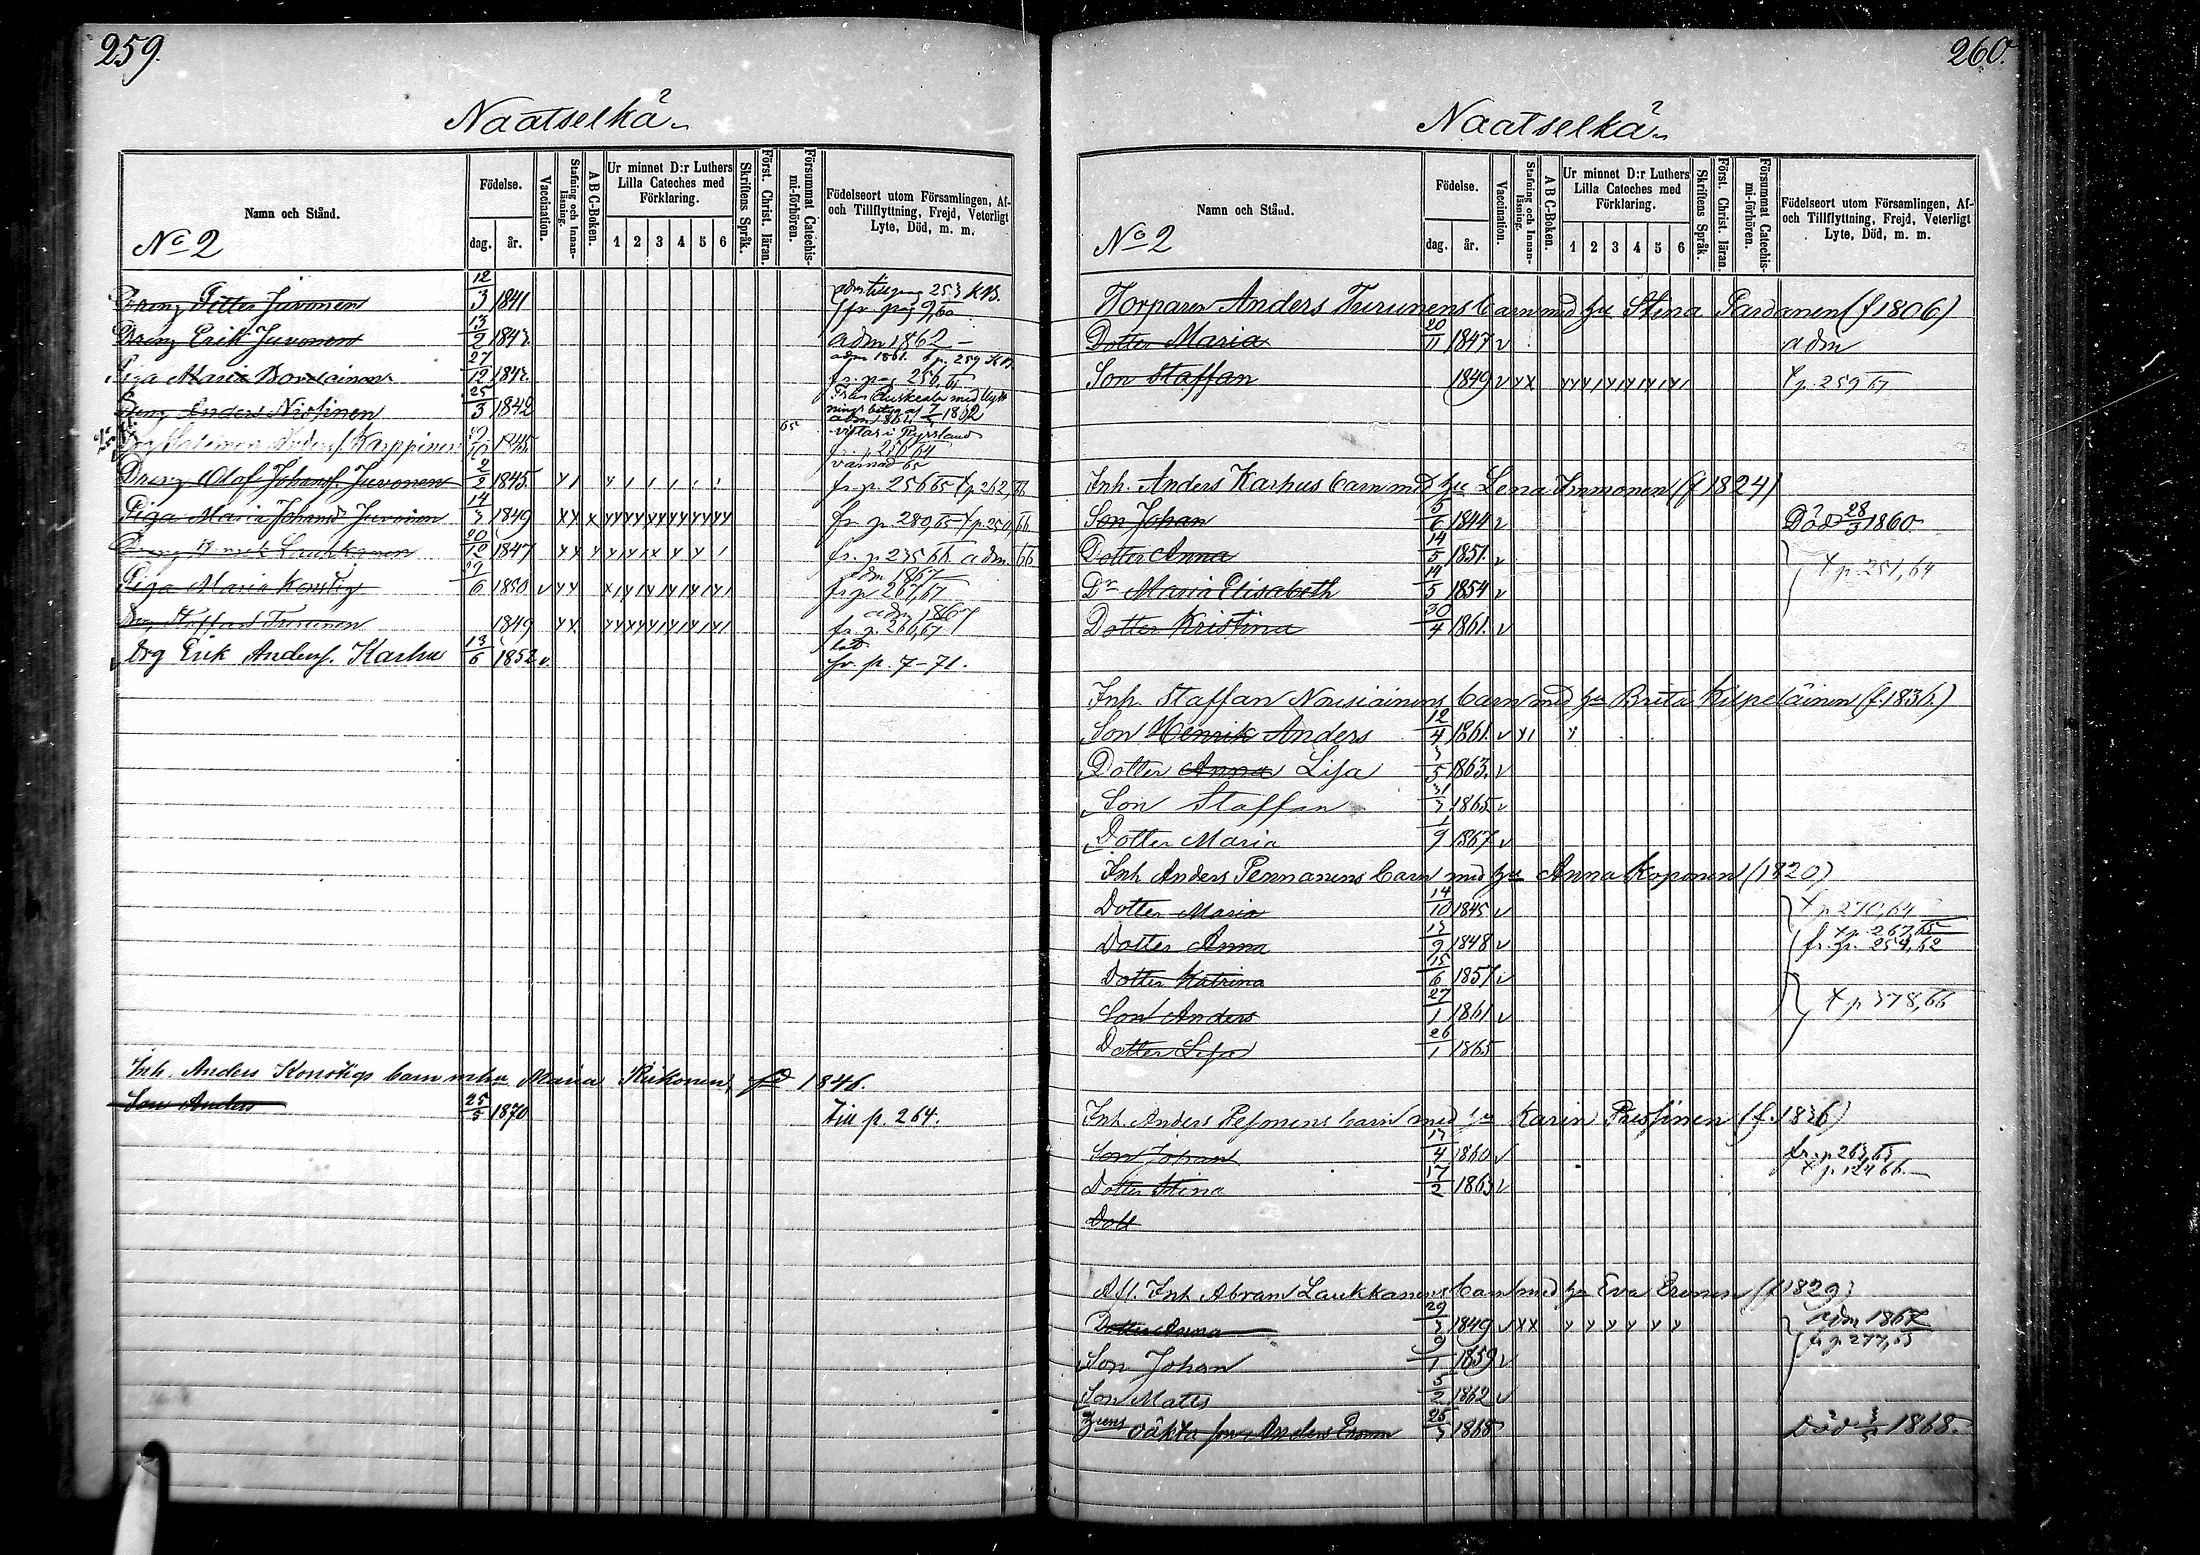 259.
Naatselkä
Namn och Stånd.
Födelse.
dag. år.
Vaccination.
Stafning och Innan-läsning.
A B C-Boken.
Ur minnet D:r Luthers Lilla Cateches med Förklaring.
1 2 3 4 5 6
Skriftens Språk.
Först. Christ. läran.
Försummat Catechis-mi-förhören.
Födelseort utom Församlingen, Af- och Tillflyttning, Frejd, Veterligt Lyte, Död, m. m.
No 2
Dreng Petter Juvonen 12/3 1841
Dreng Erik Juvonen 13/2 1843 adm 1862
Piga Maria 27/12 1842 adm 1861 fr. pag 256
Dreng Anders 25/3 1842
Karppinen vistas i Ryssland
Dreng Olof Johansf. Juvonen 2/2 1845 fr. p. 256 65 p. 262, 66
Piga Maria Johansd. Juvonen 14/3 1849 fr. p. 289, 65 p. 250, 66
Dreng Henrik Laukkanen 20/12 1847 fr. p. 235 66 adm 66
Piga Maria 29/6 1850 adm 1867 fr p 267, 67
Dreng Staffan Turunen 1849 adm 1867 fr. p. 260, 67
Drg Erik Andersf. Karhu 13/6 1852 v. fr. p. 7-71.
Inh. Anders Konstigs barn m hu Maria Riikonen, fd 1846.
Son Anders 25/5 1870 Tin p. 264.
260.
Naatselkä
Namn och Stånd.
Födelse.
dag. år.
Vaccination.
Stafning och Innan-läsning.
A B C-Boken.
Ur minnet D:r Luthers Lilla Cateches med Förklaring.
1 2 3 4 5 6
Skriftens Språk.
Först. Christ. läran.
Försummat Catechis-mi-förhören.
Födelseort utom Församlingen, Af- och Tillflyttning, Frejd, Veterligt Lyte, Död, m. m.
No 2
Torparen Anders Turunens barn med hu Stina Pardanen (f 1806)
Dotter Maria 20/11 1847 v adm
Son Staffan 1849 v p. 259 67
Inh. Anders Karhus barn med hu Lena Immonen (f 1824)
Son Johan 5/6 1844 v Död 28/3 1860
Dotter Anna 14/5 1851. v
Dr Maria Elisabeth 14/5 1854 v p. 251, 64
Dotter Kristina 30/4 1861. v
Inh. Staffan Nousiainens barn med hu Brita Kilpeläinen (f. 1836.)
Son Henrik Anders 12/4 1861. v
Dotter Anna Lisa 3/5 1863. v
Son Staffan 31/3 1865 v
Dotter Maria 1/9 1867 v
Inh Anders Pennanens barn med hu Anna Koponen (1820)
Dotter Maria 14/10 1845 v p 270, 64
Dotter Anna 13/9 1848 v p. 267, 65 fr. p. 254, 62
Dotter Katrina 15/6 1857 v
Son Anders 27/1 1861 v p 378, 66
Dotter Lisa 26/1 1865
Inh Anders Pesonens barn med hu Karin (f. 1836)
Son Johan 17/4 1860 v fr. p 263, 65
Dotter Stina 17/2 1863 v p. 124 66.
Dott
Afl. Inh Abram Laukkanens barn med hu Eva Eronen (f 1829)
Dotter Anna 29/3 1849 v adm 1867
Son Johan 9/1 1859 v fr p. 277, 65
Son Matts 5/2 1862 v
Hens oäkta son Anders Eronen 25/3 1868 Död 3/5 1868.